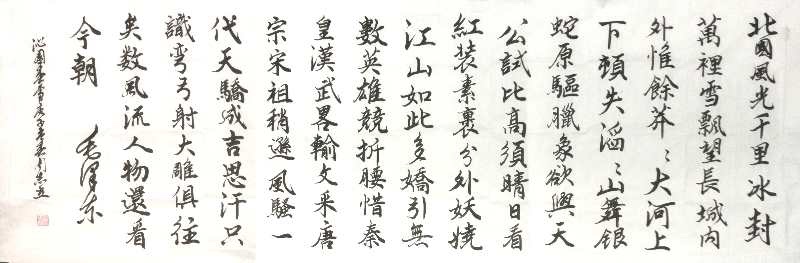 北國風光千里冰封
萬裡雪飄望長城内
外惟餘莽〻大河上
下頓失滔〻山舞銀
蛇原驅臘象欲與天
公試比高須晴日看
紅装素裹分外妖娆
江山如此多嬌引無
數英雄競折腰惜秦
皇漢武畧輸文采唐
宗宋祖稍遜風騷一
代天驕成吉思汗只
識弯弓射大雕俱往
矣数風流人物還看
今朝 毛澤东
沁園春雪庚子年春